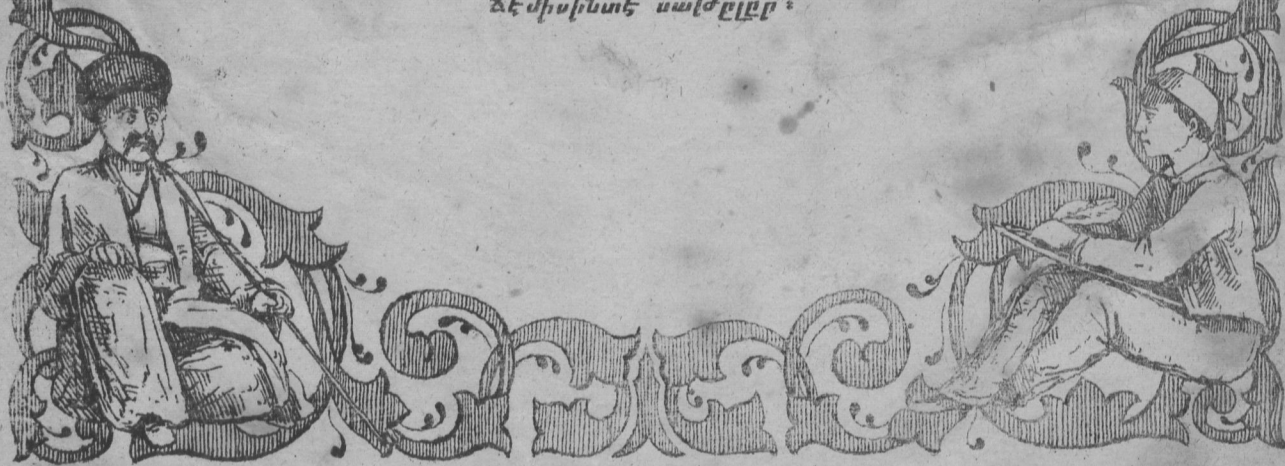 ՃԷմիսինտէ սաթըլըր ։